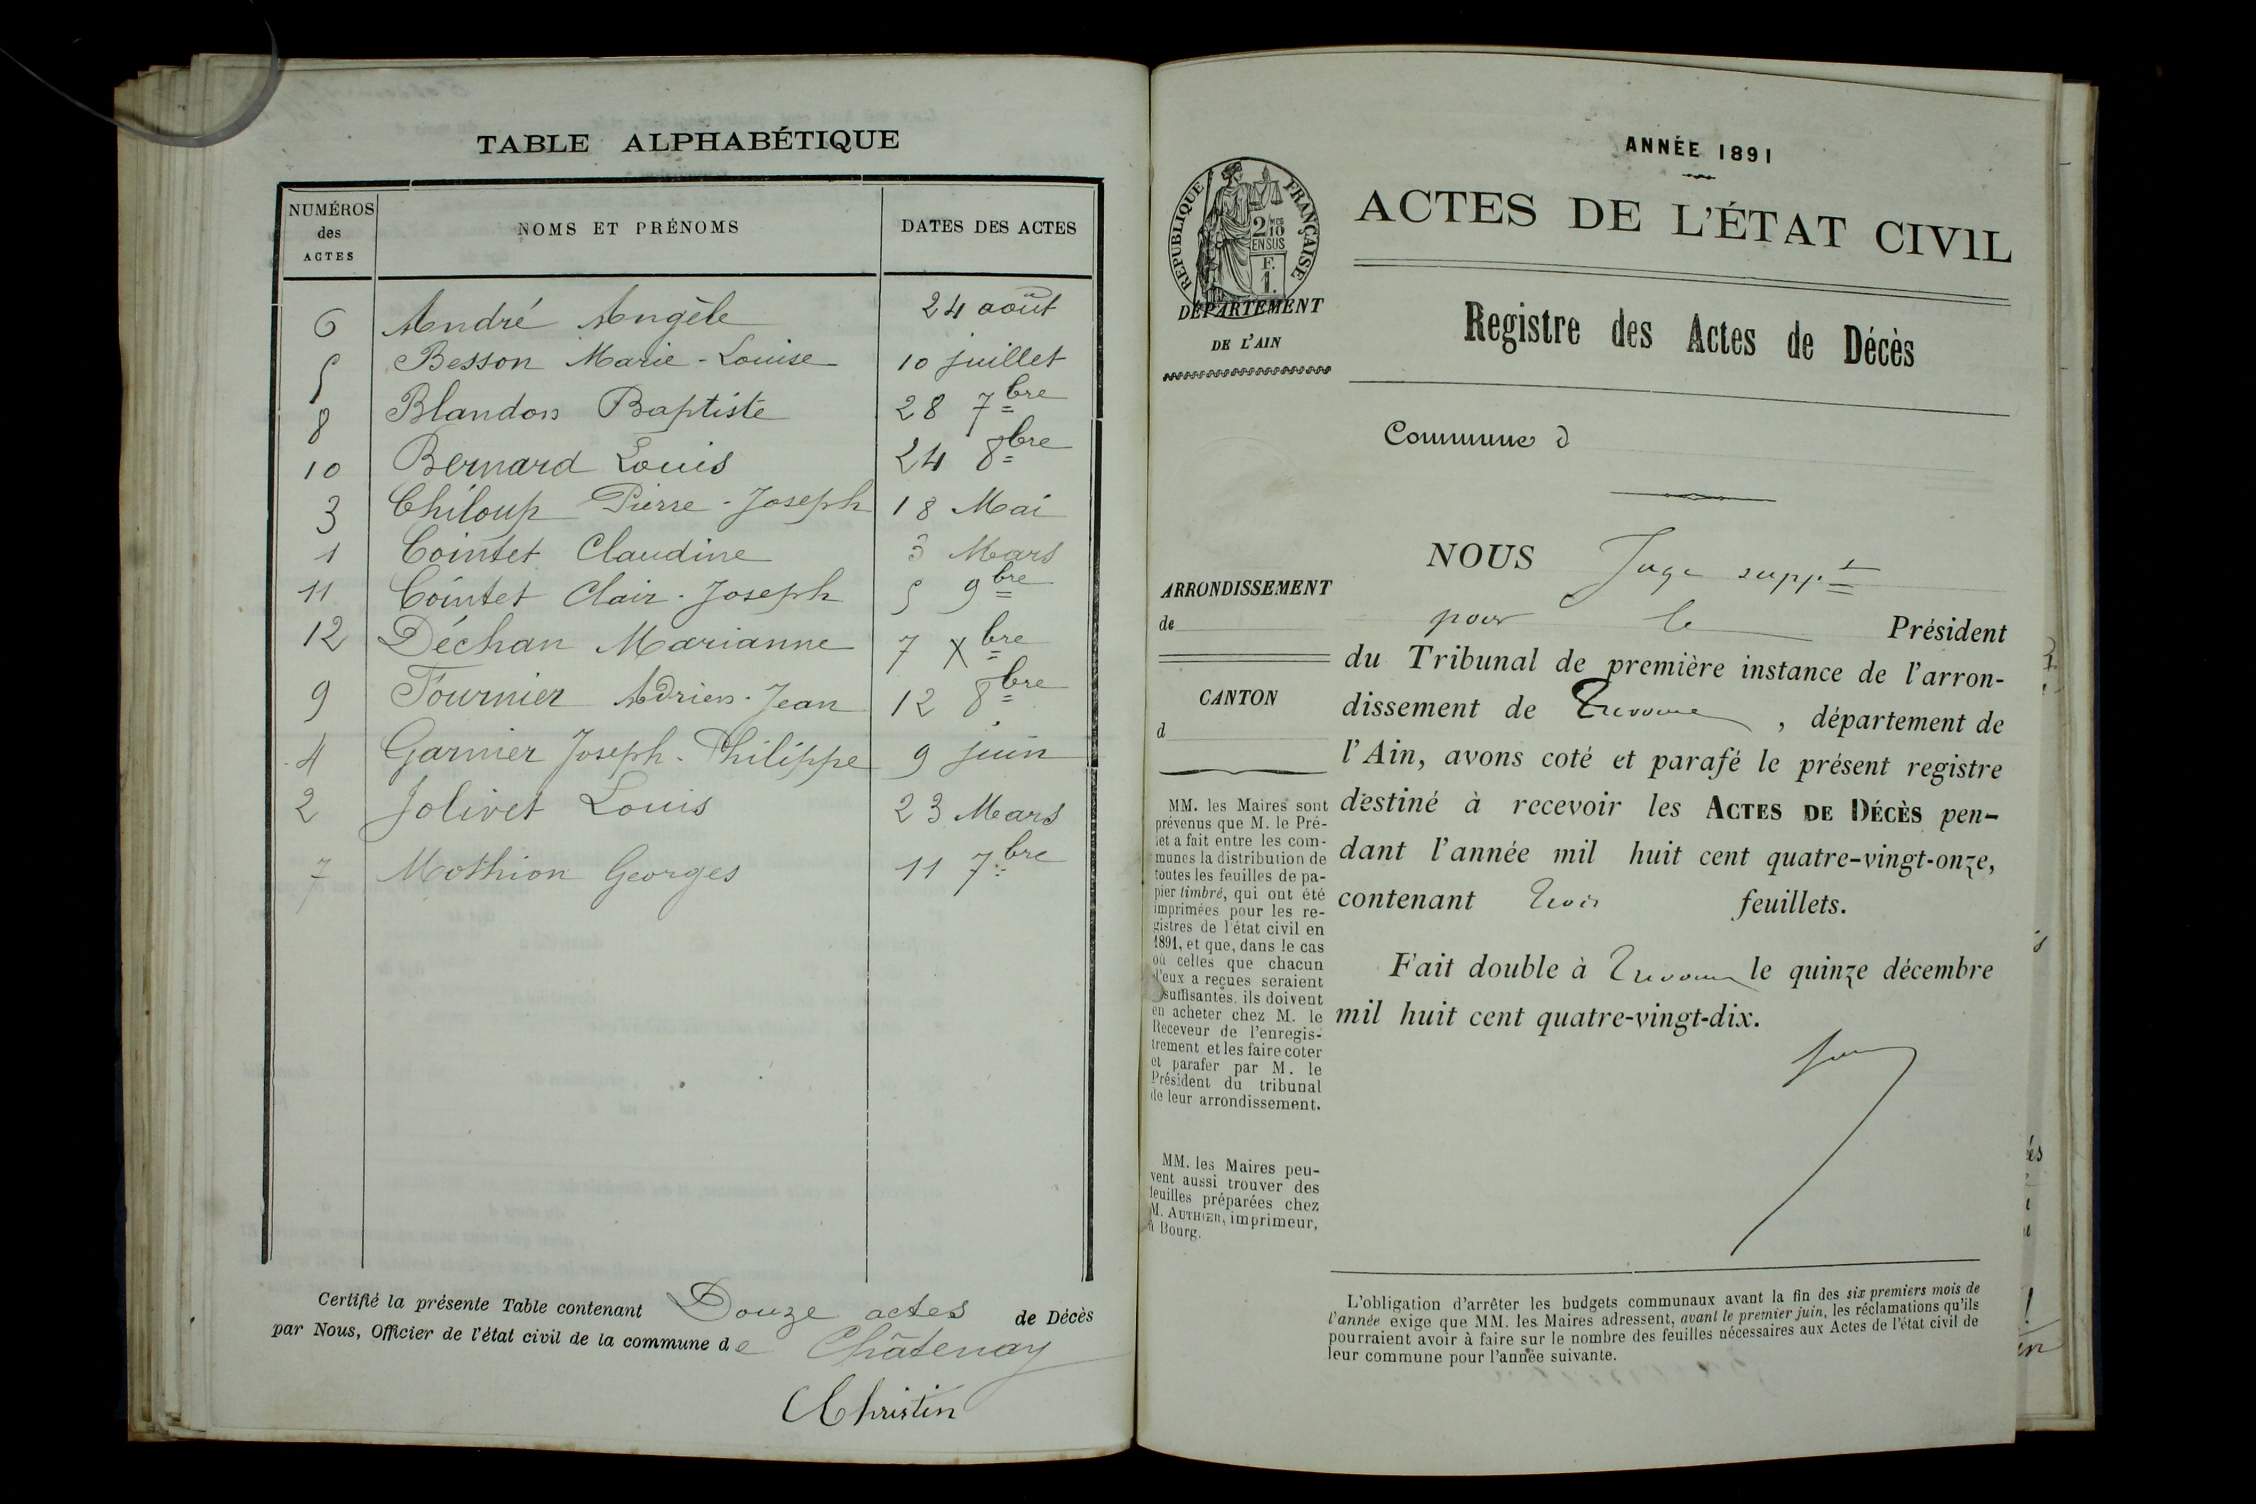 TABLE ALPHABÉTIQUE
NUMÉROS des ACTES NOMS ET PRÉNOMS DATES DES ACTES
6 André Angèle 24 août
5 Besson Marie-Louise 10 juillet
8 Blandon Baptiste 28 7bre
10 Bernard Louis 24 8bre
3 Chiloup Pierre-Joseph 18 Mai
1 Cointet Claudine 3 Mars
11 Cointet Clair-Joseph 5 9bre
12 Déchan Marianne 7 Xbre
9 Fournier Adrien-Jean 12 8bre
4 Garnier Joseph-Philippe 9 juin
2 Jolivet Louis 23 Mars
7 Mothion Georges 11 7bre
Certifié la présente Table contenant Douze actes de Décès
par Nous, Officier de l'état civil de la commune de Châtenay
Christin
ANNÉE 1891
ACTES DE L'ÉTAT CIVIL
RÉPUBLIQUE FRANÇAISE
2/10
EN SUS
F.
1.
DÉPARTEMENT
DE L'AIN
Registre des Actes de Décès
Commune d
ARRONDISSEMENT
de
CANTON
d
NOUS Juge suppt
pour le Président
du Tribunal de première instance de l'arron-
dissement de Trévoux, département de
l'Ain, avons coté et parafé le présent registre
destiné à recevoir les ACTES DE DÉCÈS pen-
dant l'année mil huit cent quatre-vingt-onze,
contenant trois feuillets.
Fait double à Trévoux le quinze décembre
mil huit cent quatre-vingt-dix.
MM. les Maires sont
prévenus que M. le Pré-
fet a fait entre les com-
munes la distribution de
toutes les feuilles de pa-
pier timbré, qui ont été
imprimées pour les re-
gistres de l'état civil en
1891, et que, dans le cas
où celles que chacun
d'eux a reçues seraient
suffisantes, ils doivent
en acheter chez M. le
Receveur de l'enregis-
trement et les faire coter
et parafer par M. le
Président du tribunal
de leur arrondissement.
MM. les Maires peu-
vent aussi trouver des
feuilles préparées chez
M. AUTHIER, imprimeur,
à Bourg.
L'obligation d'arrêter les budgets communaux avant la fin des six premiers mois de
l'année exige que MM. les Maires adressent, avant le premier juin, les réclamations qu'ils
pourraient avoir à faire sur le nombre des feuilles nécessaires aux Actes de l'état civil de
leur commune pour l'année suivante.